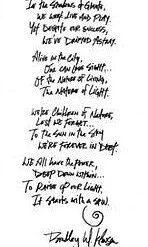 In the Shadows of Giants,
We Work Live and Play.
Yet Despite our Success,
We've Drifted Astray.
Alive in the City,
One can Lose Sight...
Of the Nature of Living,
The Nature of Light.
We're Children of Nature,
Lest We Forget...
To the Sun in the Sky
We're Forever in Debt.
We All Have the Power,
Deep Down Within...
To Raise up our Light,
It Starts with a Spin.